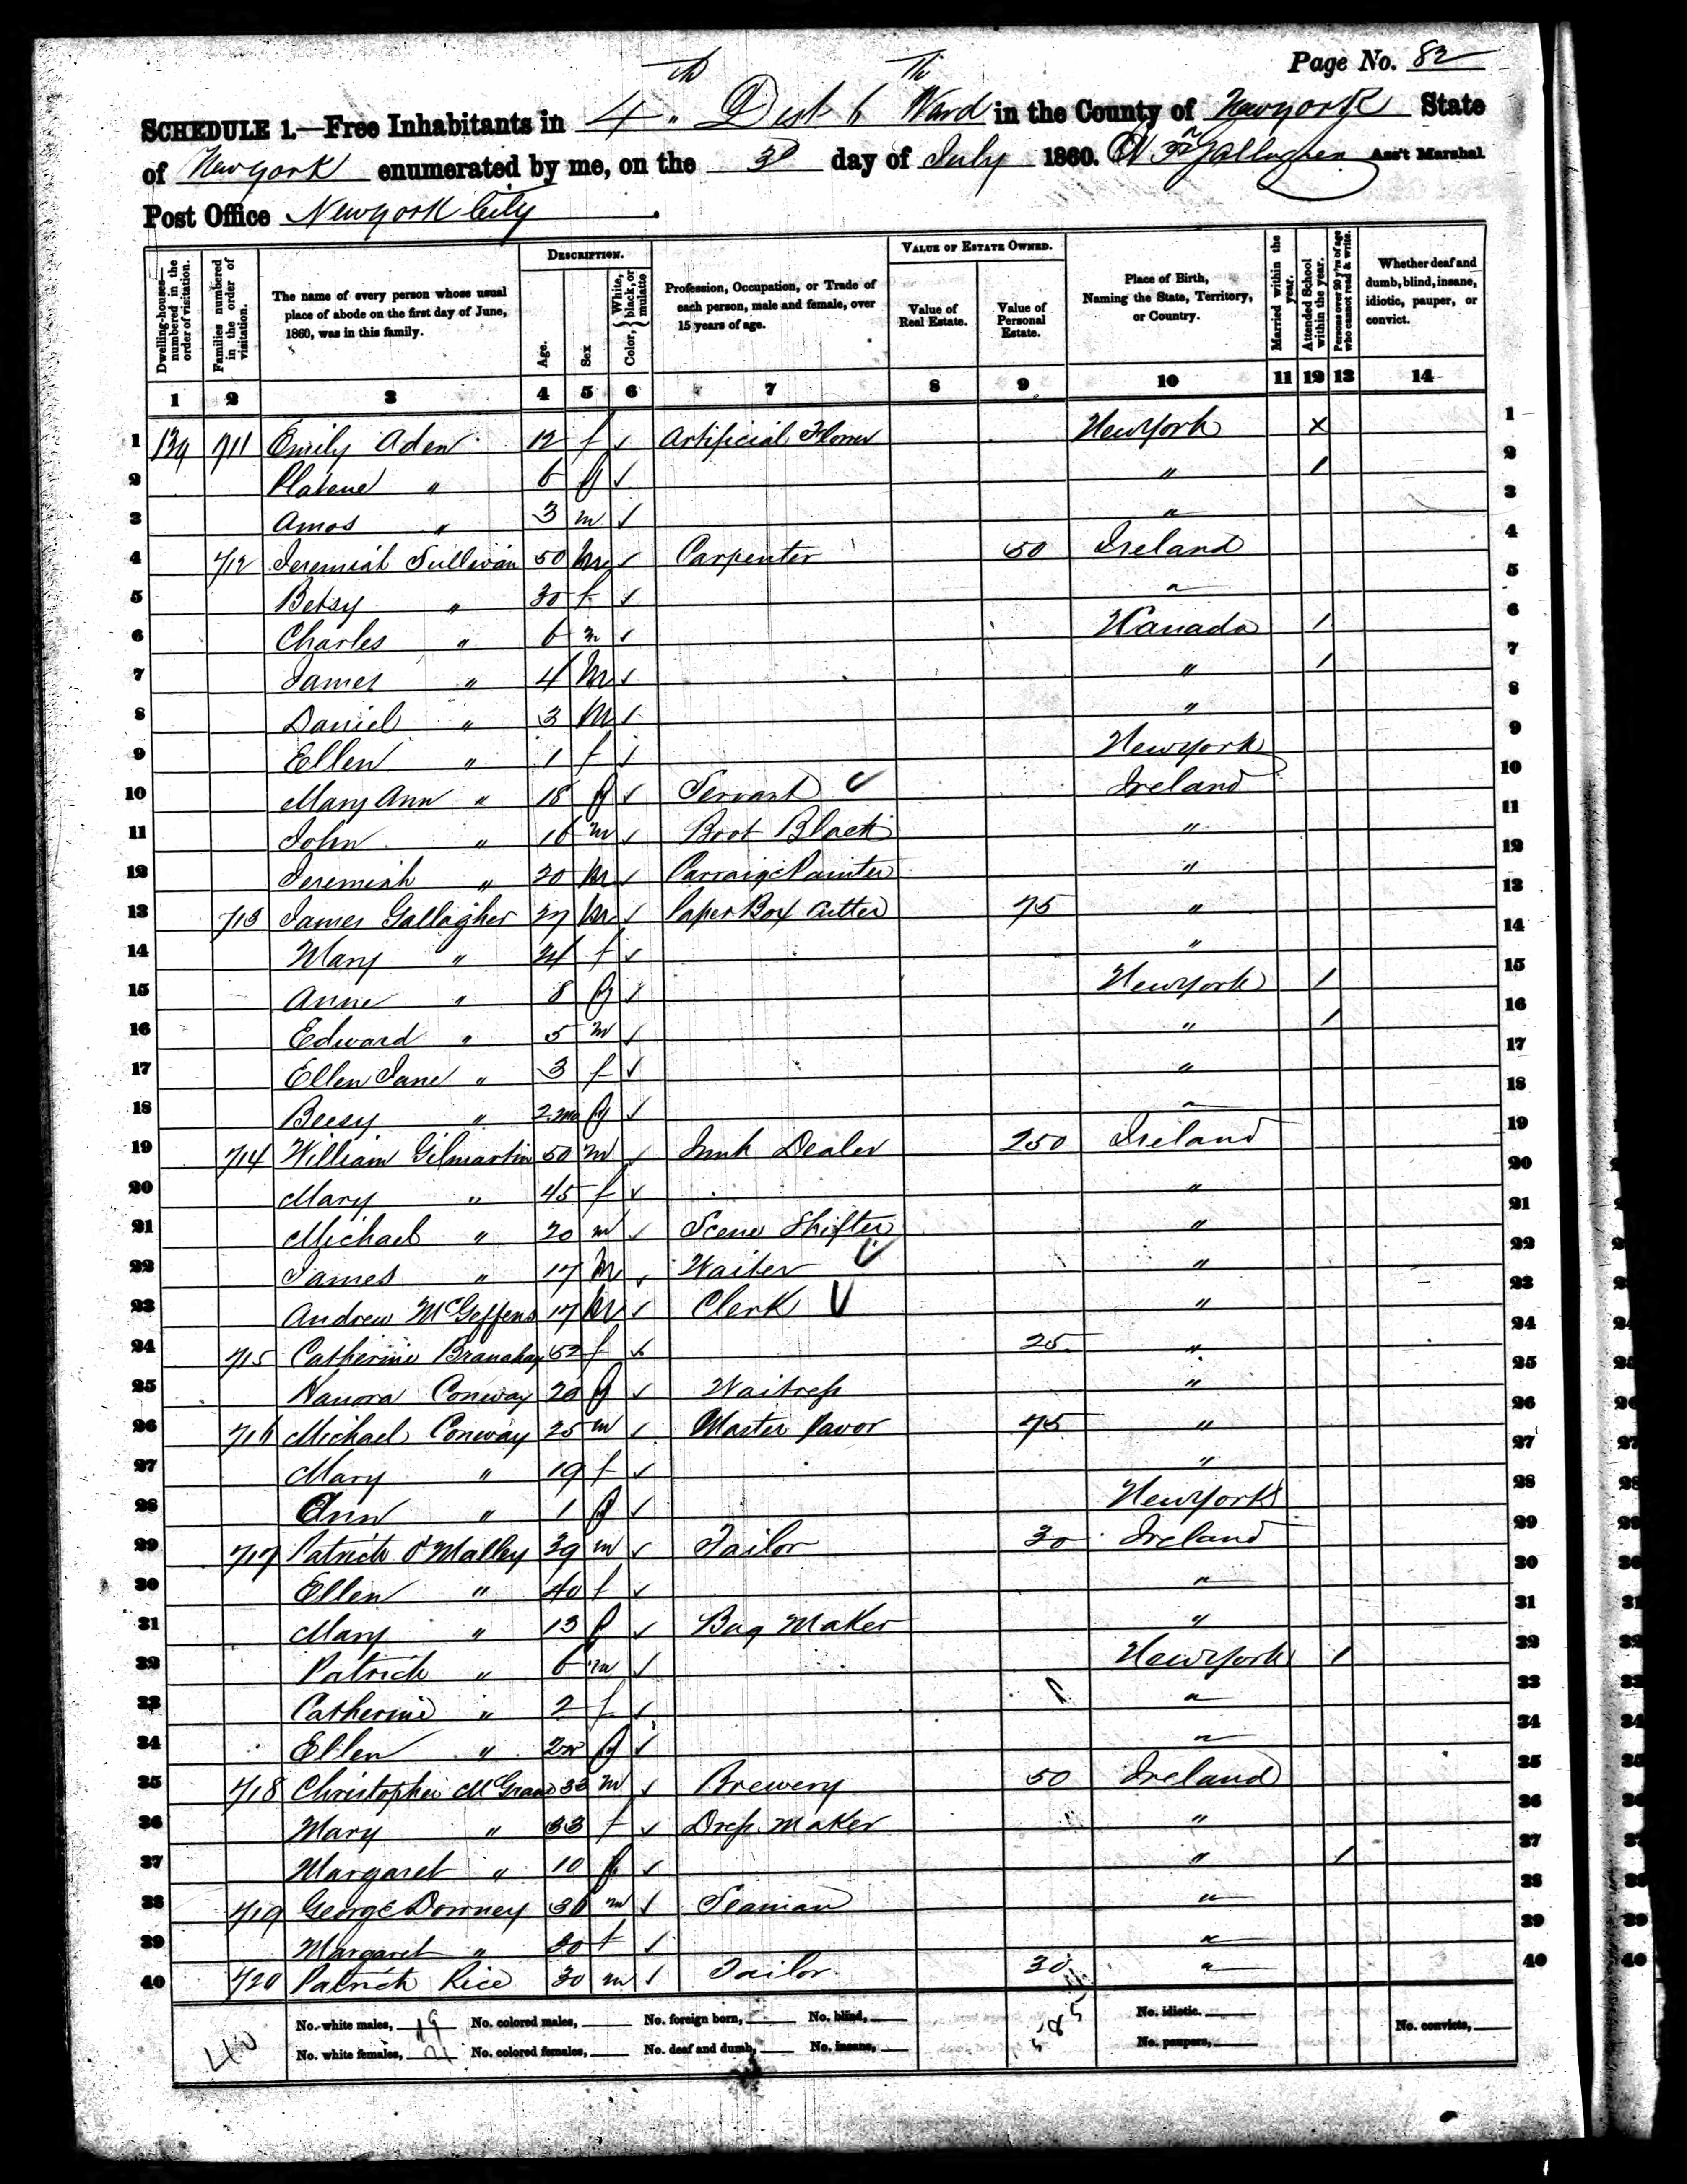 Page No. 82
SCHEDULE 1.—Free Inhabitants in 4 " Dist 6 Th Ward in the County of Newyork State
of Newyork enumerated by me, on the 3d day of July 1860. Gallagher Ass't Marshal
Post Office Newyork City.
DESCRIPTION. VALUE OF ESTATE OWNED.
Dwelling-houses—numbered in the order of visitation. Families numbered in the order of visitation. The name of every person whose usual place of abode on the first day of June, 1860, was in this family. Age. Sex Color, {White, black, or mulatto Profession, Occupation, or Trade of each person, male and female, over 15 years of age. Value of Real Estate. Value of Personal Estate. Place of Birth, Naming the State, Territory, or Country. Married within the year. Attended School within the year. Persons over 20 y'rs of age who cannot read & write. Whether deaf and dumb, blind, insane, idiotic, pauper, or convict.
1 2 3 4 5 6 7 8 9 10 11 12 13 14
1 139 711 Emily Aden 12 f ✓ Artificial Flower NewYork x 1
2 " 6 f ✓ " / 2
3 Amos " 3 m ✓ " 3
4 712 Jeremiah Sullivan 50 m ✓ Carpenter 50 Ireland 4
5 Betsy " 30 f ✓ " 5
6 Charles " 6 m ✓ Canada / 6
7 James " 4 m ✓ " / 7
8 Daniel " 3 m ✓ " 8
9 Ellen " 1 f ✓ Newyork 9
10 Mary Ann " 18 f ✓ Servant ✓ Ireland 10
11 John " 16 m ✓ Boot Black " 11
12 Jeremiah " 20 m ✓ Carraige Painter " 12
13 713 James Gallagher 27 m ✓ Paper Box Cutter 75 " 13
14 Mary " f ✓ " 14
15 Anne " 8 f ✓ Newyork / 15
16 Edward " 5 m ✓ " / 16
17 Ellen Jane " 3 f ✓ " 17
18 Beesy " 2 mo f ✓ " 18
19 714 William Gilmartin 50 m ✓ Junk Dealer 250 Ireland 19
20 Mary " 45 f ✓ " 20
21 Michael " 20 m ✓ Scene Shifter " 21
22 James " 17 m ✓ Waiter ✓ " 22
23 Andrew 17 m ✓ Clerk ✓ " 23
24 715 Catherine 52 f ✓ 25 " 24
25 Hanora Conway 20 f ✓ Waitress " 25
26 716 Michael Conway 25 m ✓ Master Pavor 75 " 26
27 Mary " 19 f ✓ " 27
28 Ann " 1 f ✓ NewYork 28
29 717 Patrick O'Malley 39 m ✓ Tailor 30 Ireland 29
30 Ellen " 40 f ✓ " 30
31 Mary " 13 f ✓ Bag Maker " 31
32 Patrick " 6 m ✓ NewYork / 32
33 Catherine " 2 f ✓ " 33
34 Ellen " f ✓ " 34
35 718 Christopher 33 m ✓ Brewery 50 Ireland 35
36 Mary " 33 f ✓ Dress Maker " 36
37 Margaret " 10 f ✓ " / 37
38 719 George Downey 36 m ✓ Seaman " 38
39 Margaret " 30 f ✓ " 39
40 720 Patrick Rice 30 m ✓ Tailor 30 " 40
40 No. white males, 19 No. colored males, No. foreign born, No. blind, 585 No. idiotic. No. convicts,
No. white females, 21 No. colored females, No. deaf and dumb, No. insane, No. paupers,